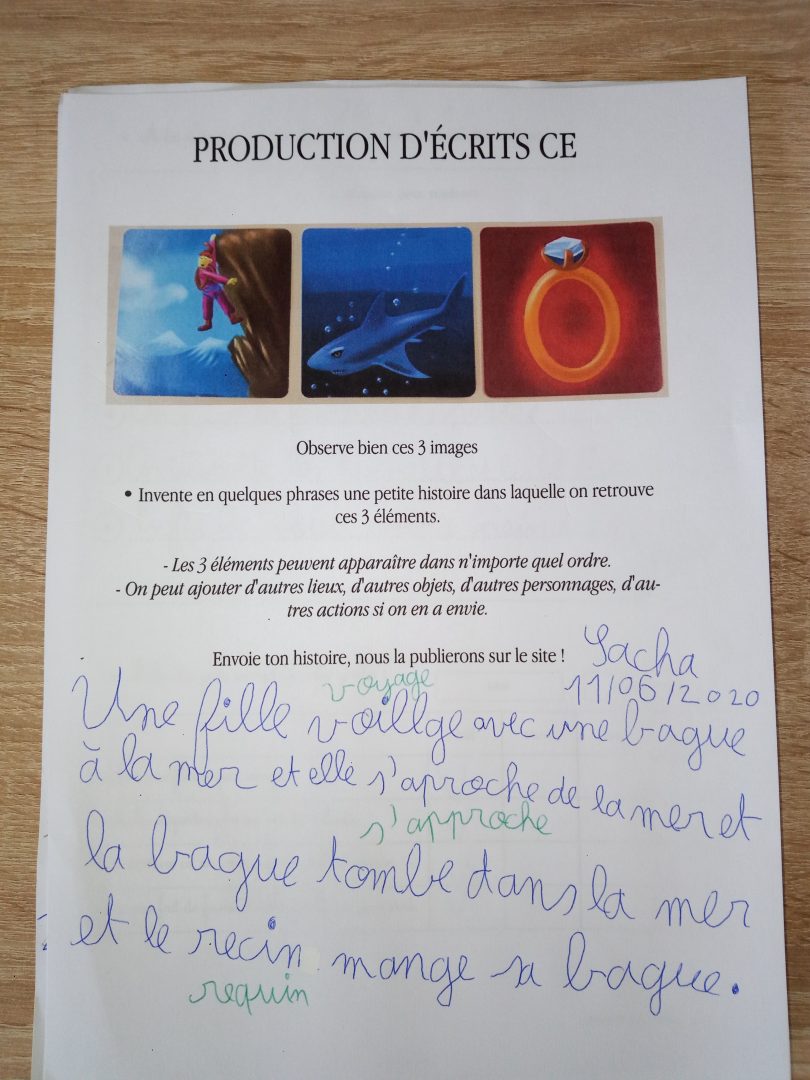 PRODUCTION D'ÉCRITS CE
Observe bien ces 3 images
• Invente en quelques phrases une petite histoire dans laquelle on retrouve
ces 3 éléments.
- Les 3 éléments peuvent apparaître dans n'importe quel ordre.
- On peut ajouter d'autres lieux, d'autres objets, d'autres personnages, d'au-
tres actions si on en a envie.
Envoie ton histoire, nous la publierons sur le site !
Sacha
11/06/2020
voyage
Une fille voillge avec une bague
à la mer et elle s'aproche de la mer et
s'approche
la bague tombe dans la mer
et le recin mange sa bague.
requin